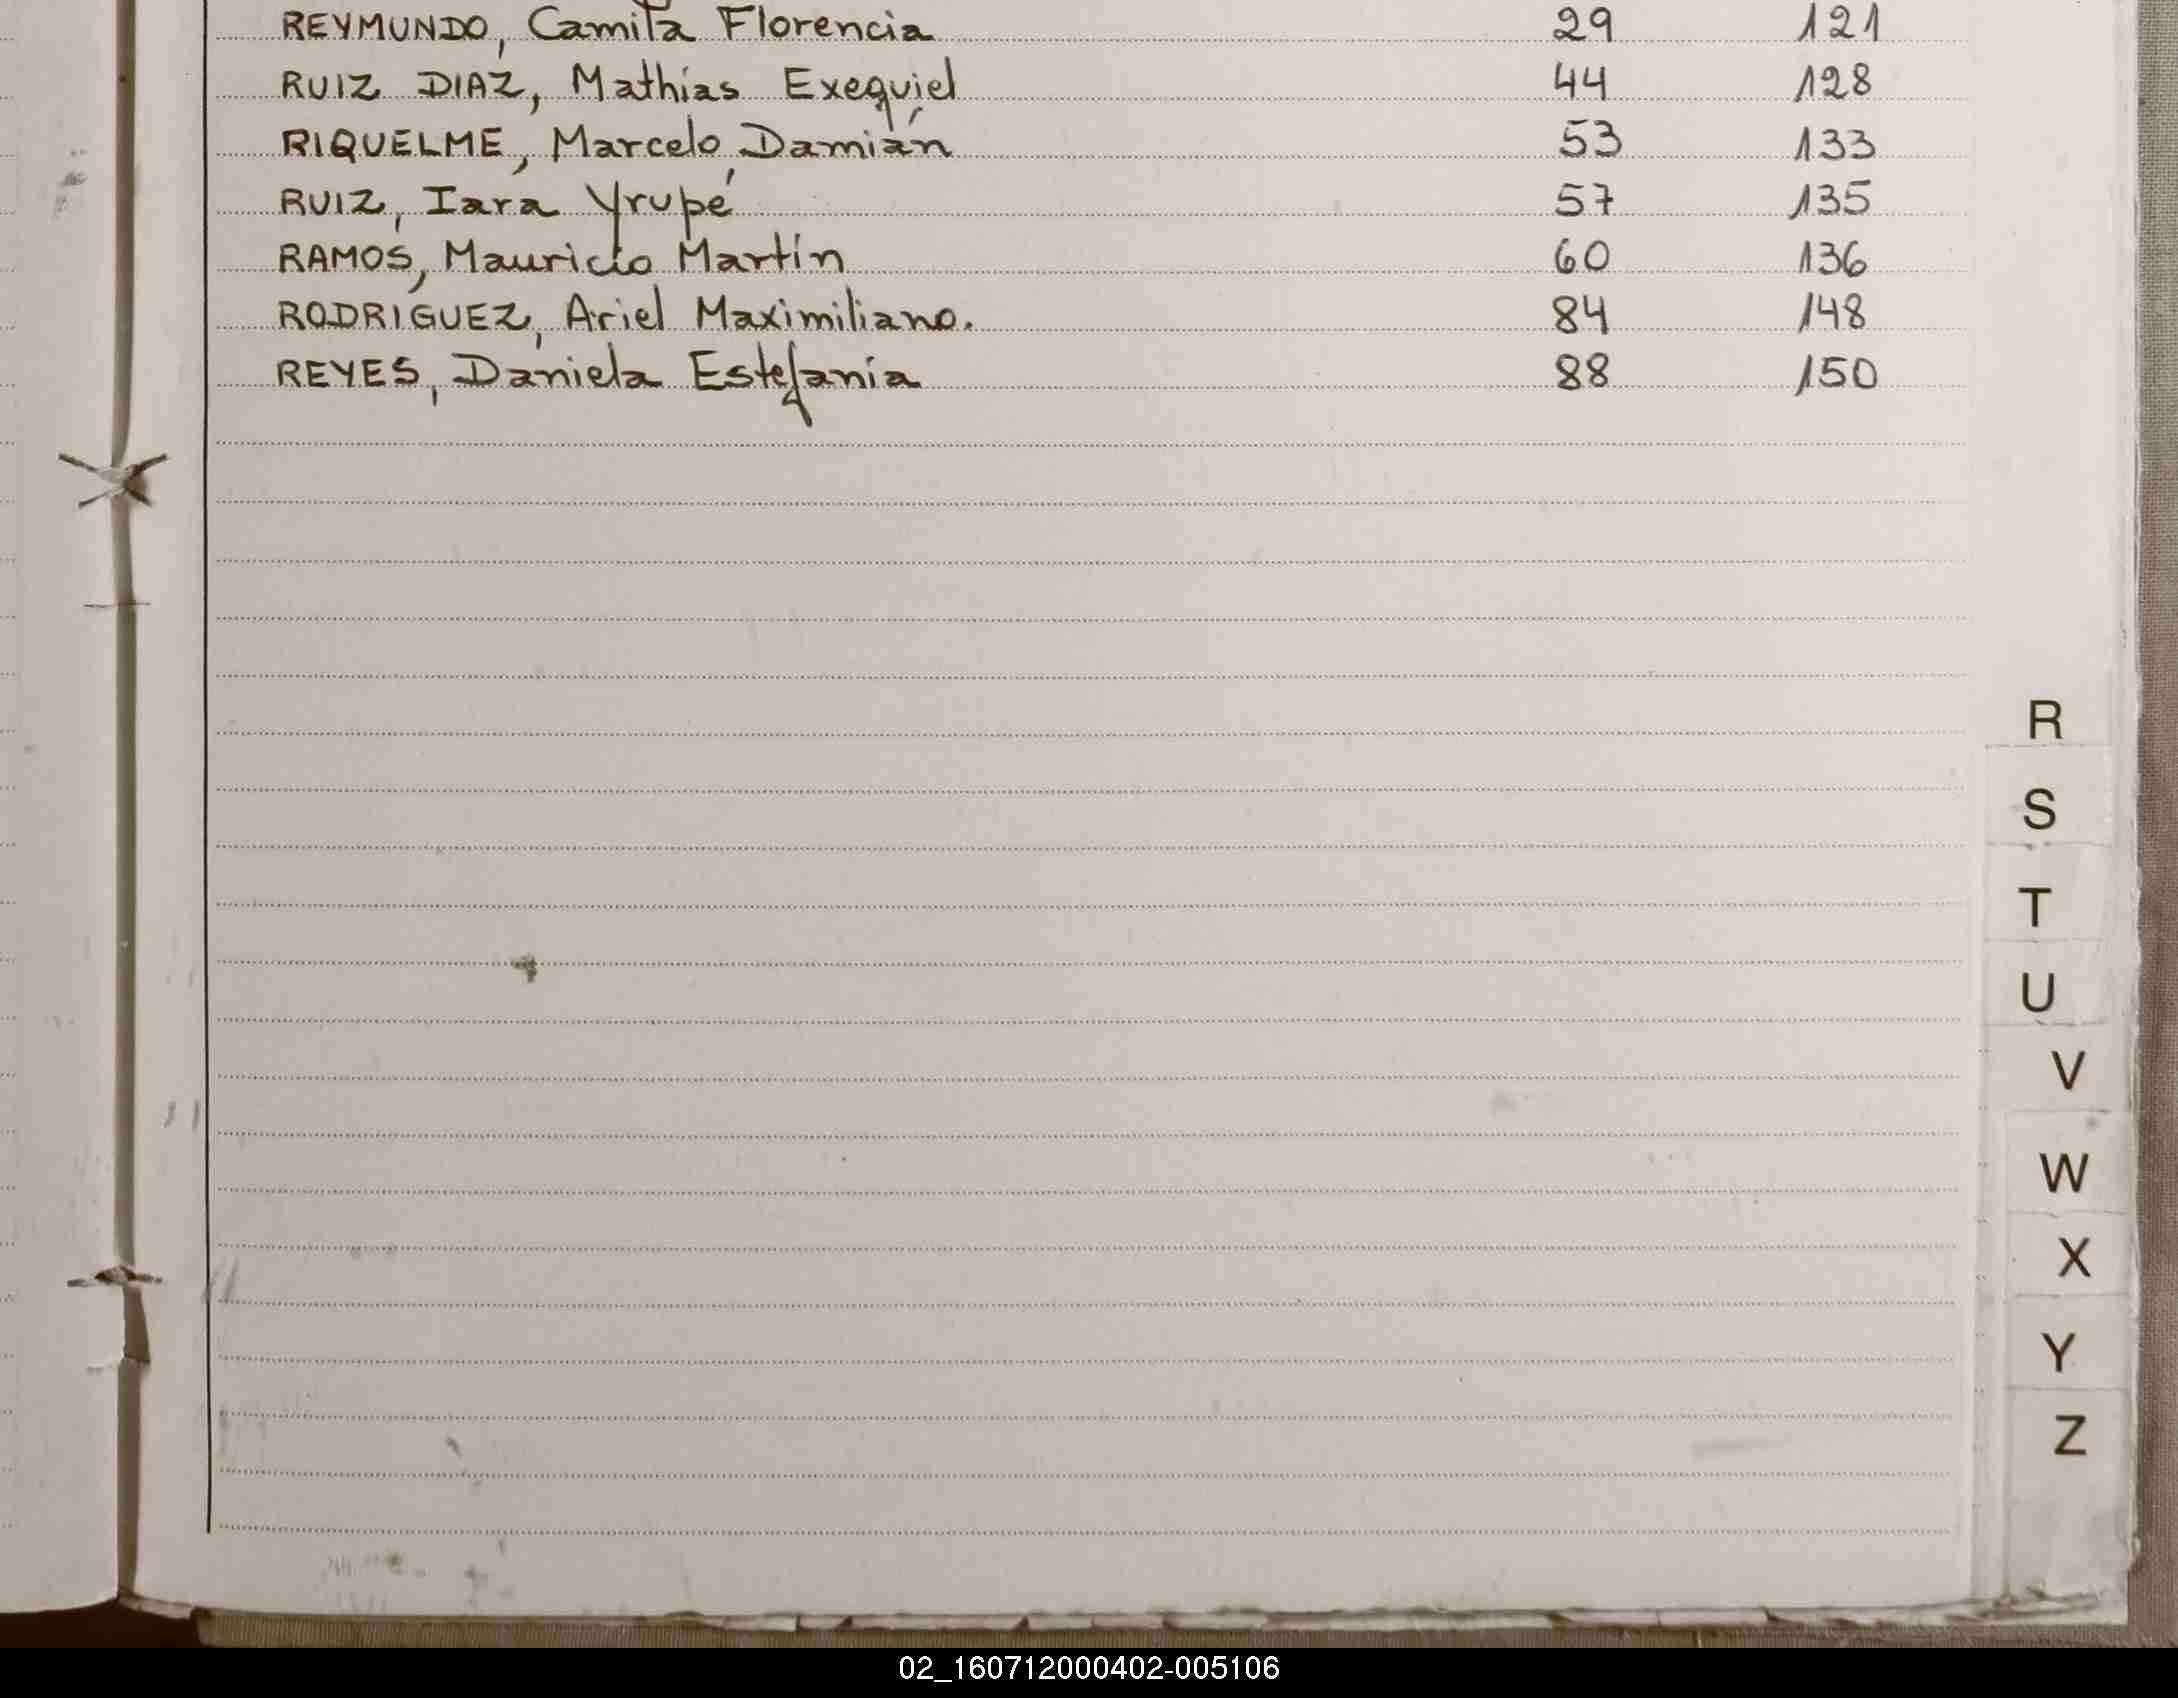 REYMUNDO, Camila Florencia 29 121
RUIZ DIAZ, Mathías Exequiel 44 128
RIQUELME, Marcelo Damián 53 133
RUIZ, Iara Yrupé 57 135
RAMOS, Mauricio Martín 60 136
RODRIGUEZ, Ariel Maximiliano. 84 148
REYES, Daniela Estefanía 88 150
R
S
T
U
V
W
X
Y
Z
02_160712000402-005106